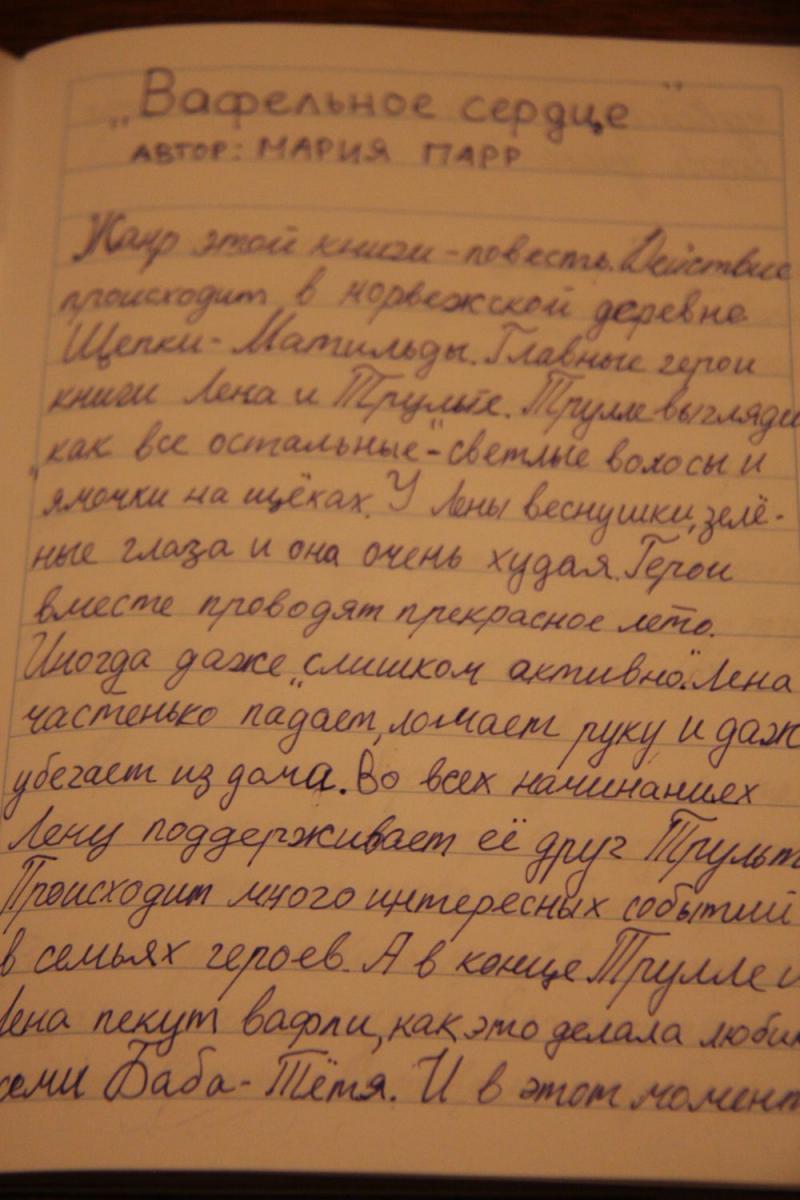 „Вафельное сердце"
АВТОР: МАРИЯ ПАРР
Жанр этой книги - повесть. Действие
происходит в норвежской деревне
Щепки-Матильды. Главные герои
книги Лена и Трулле. Трулле выгляди
„как все остальные" - светлые волосы и
ямочки на щёках. У Лены веснушки, зелё-
ные глаза и она очень худая. Герои
вместе проводят прекрасное лето.
Иногда даже „слишком активно". Лена
частенько падает, ломает руку и даж
убегает из дома. Во всех начинаниях
Лену поддерживает её друг Трульт
Происходит много интересных событий
в семьях героев. А в конце Трулле и
Лена пекут вафли, как это делала люби
семи Баба-Тётя. И в этот момент